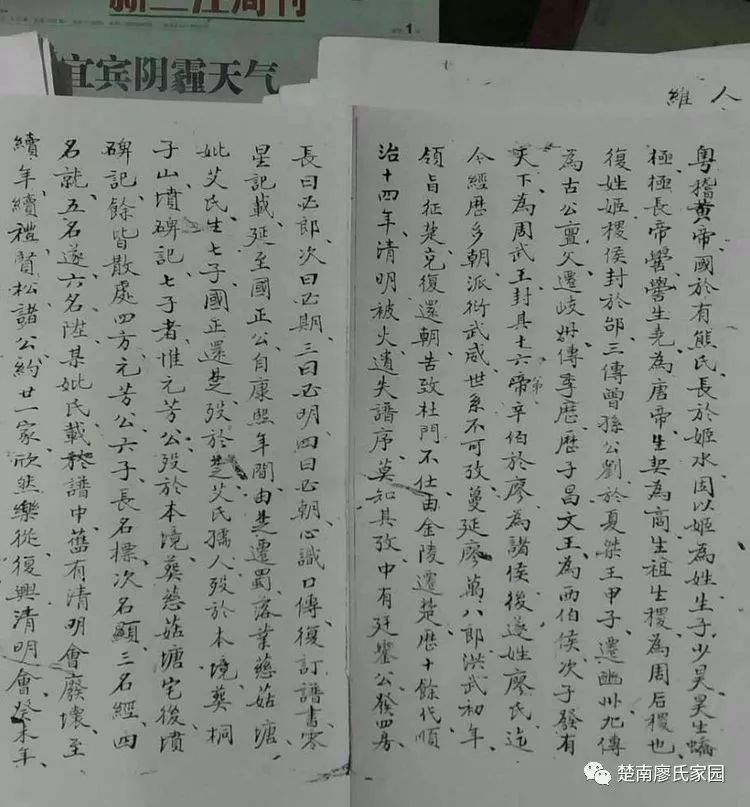 新三江周刊
1
宜宾阴霾天气
維人
粵稽黃帝國於有熊氏、長於姬水因以姬為姓生子少昊、昊生蟜
極、極長帝嚳、嚳生堯為唐帝、生契為商生祖、生稷為周后稷也、
復姓姬稷侯封於邰三傳曾孫公劉於夏桀王甲子遷豳州九傳
為古公亶父遷岐州傳季歷、歷子昌文王、為西伯侯次子發有
天下、為周武王、封其十六帝辛伯於廖為諸侯後遂姓廖氏迄
弟
今經歷多朝派衍武威世系不可攷蔓延廖萬八郎洪武初年、
領旨征楚克復還朝告致杜門不仕由金陵遷楚歷十餘代順
治十四年清明被火遺失譜序、莫知其攷中有廷鑒公發四房
長曰必郎次曰必期、三曰必明四曰必朝心識口傳、復訂譜書零
星記載、延至國正公自康熙年間由楚遷蜀落業慈菇塘、
妣艾氏生七子國正還楚歿於楚艾氏孺人歿於本境葬桐
子山墳碑記七子者惟元芳公歿於本境葬慈菇塘宅後墳
碑記餘皆散處四方元芳公六子長名標次名顯、三名經、四
名就、五名遂六名陞某妣氏載於譜中舊有清明會廢壞、至
續年續禮賢松諸公約廿一家欣然樂從復興清明會癸未年、
楚南廖氏家园